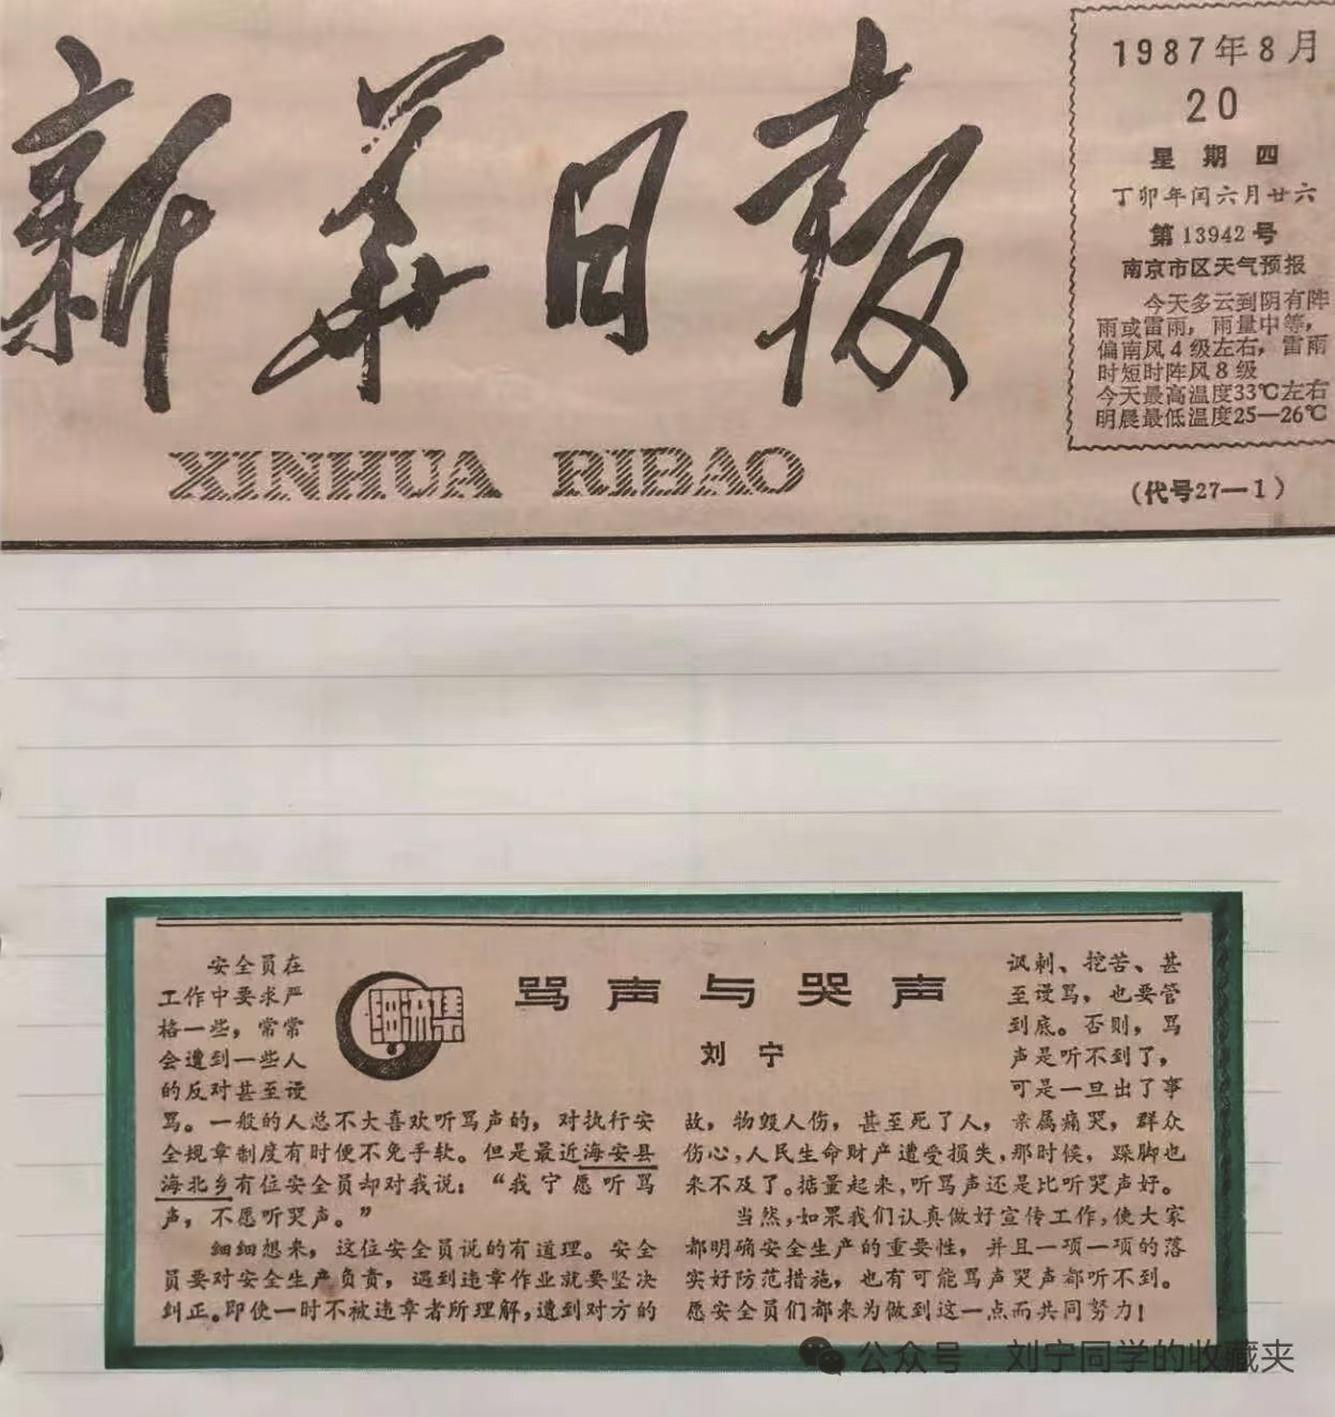 新华日报
XINHUA RIBAO
1987年8月
20
星期四
丁卯年闰六月廿六
第13942号
南京市区天气预报
今天多云到阴有阵
雨或雷雨，雨量中等，
偏南风4级左右，雷雨
时短时阵风8级
今天最高温度33℃左右
明晨最低温度25—26℃
（代号27—1）
骂声与哭声
刘宁
安全员在
工作中要求严
格一些，常常
会遭到一些人
的反对甚至谩
骂。一般的人总不大喜欢听骂声的，对执行安
全规章制度有时便不免手软。但是最近海安县
海北乡有位安全员却对我说：“我宁愿听骂
声，不愿听哭声。”
细细想来，这位安全员说的有道理。安全
员要对安全生产负责，遇到违章作业就要坚决
纠正。即使一时不被违章者所理解，遭到对方的
讽刺、挖苦、甚
至谩骂，也要管
到底。否则，骂
声是听不到了，
可是一旦出了事
故，物毁人伤，甚至死了人，亲属痛哭，群众
伤心，人民生命财产遭受损失，那时候，跺脚也
来不及了。掂量起来，听骂声还是比听哭声好。
当然，如果我们认真做好宣传工作，使大家
都明确安全生产的重要性，并且一项一项的落
实好防范措施，也有可能骂声哭声都听不到。
愿安全员们都来为做到这一点而共同努力！
公众号 刘宁同学的收藏夹